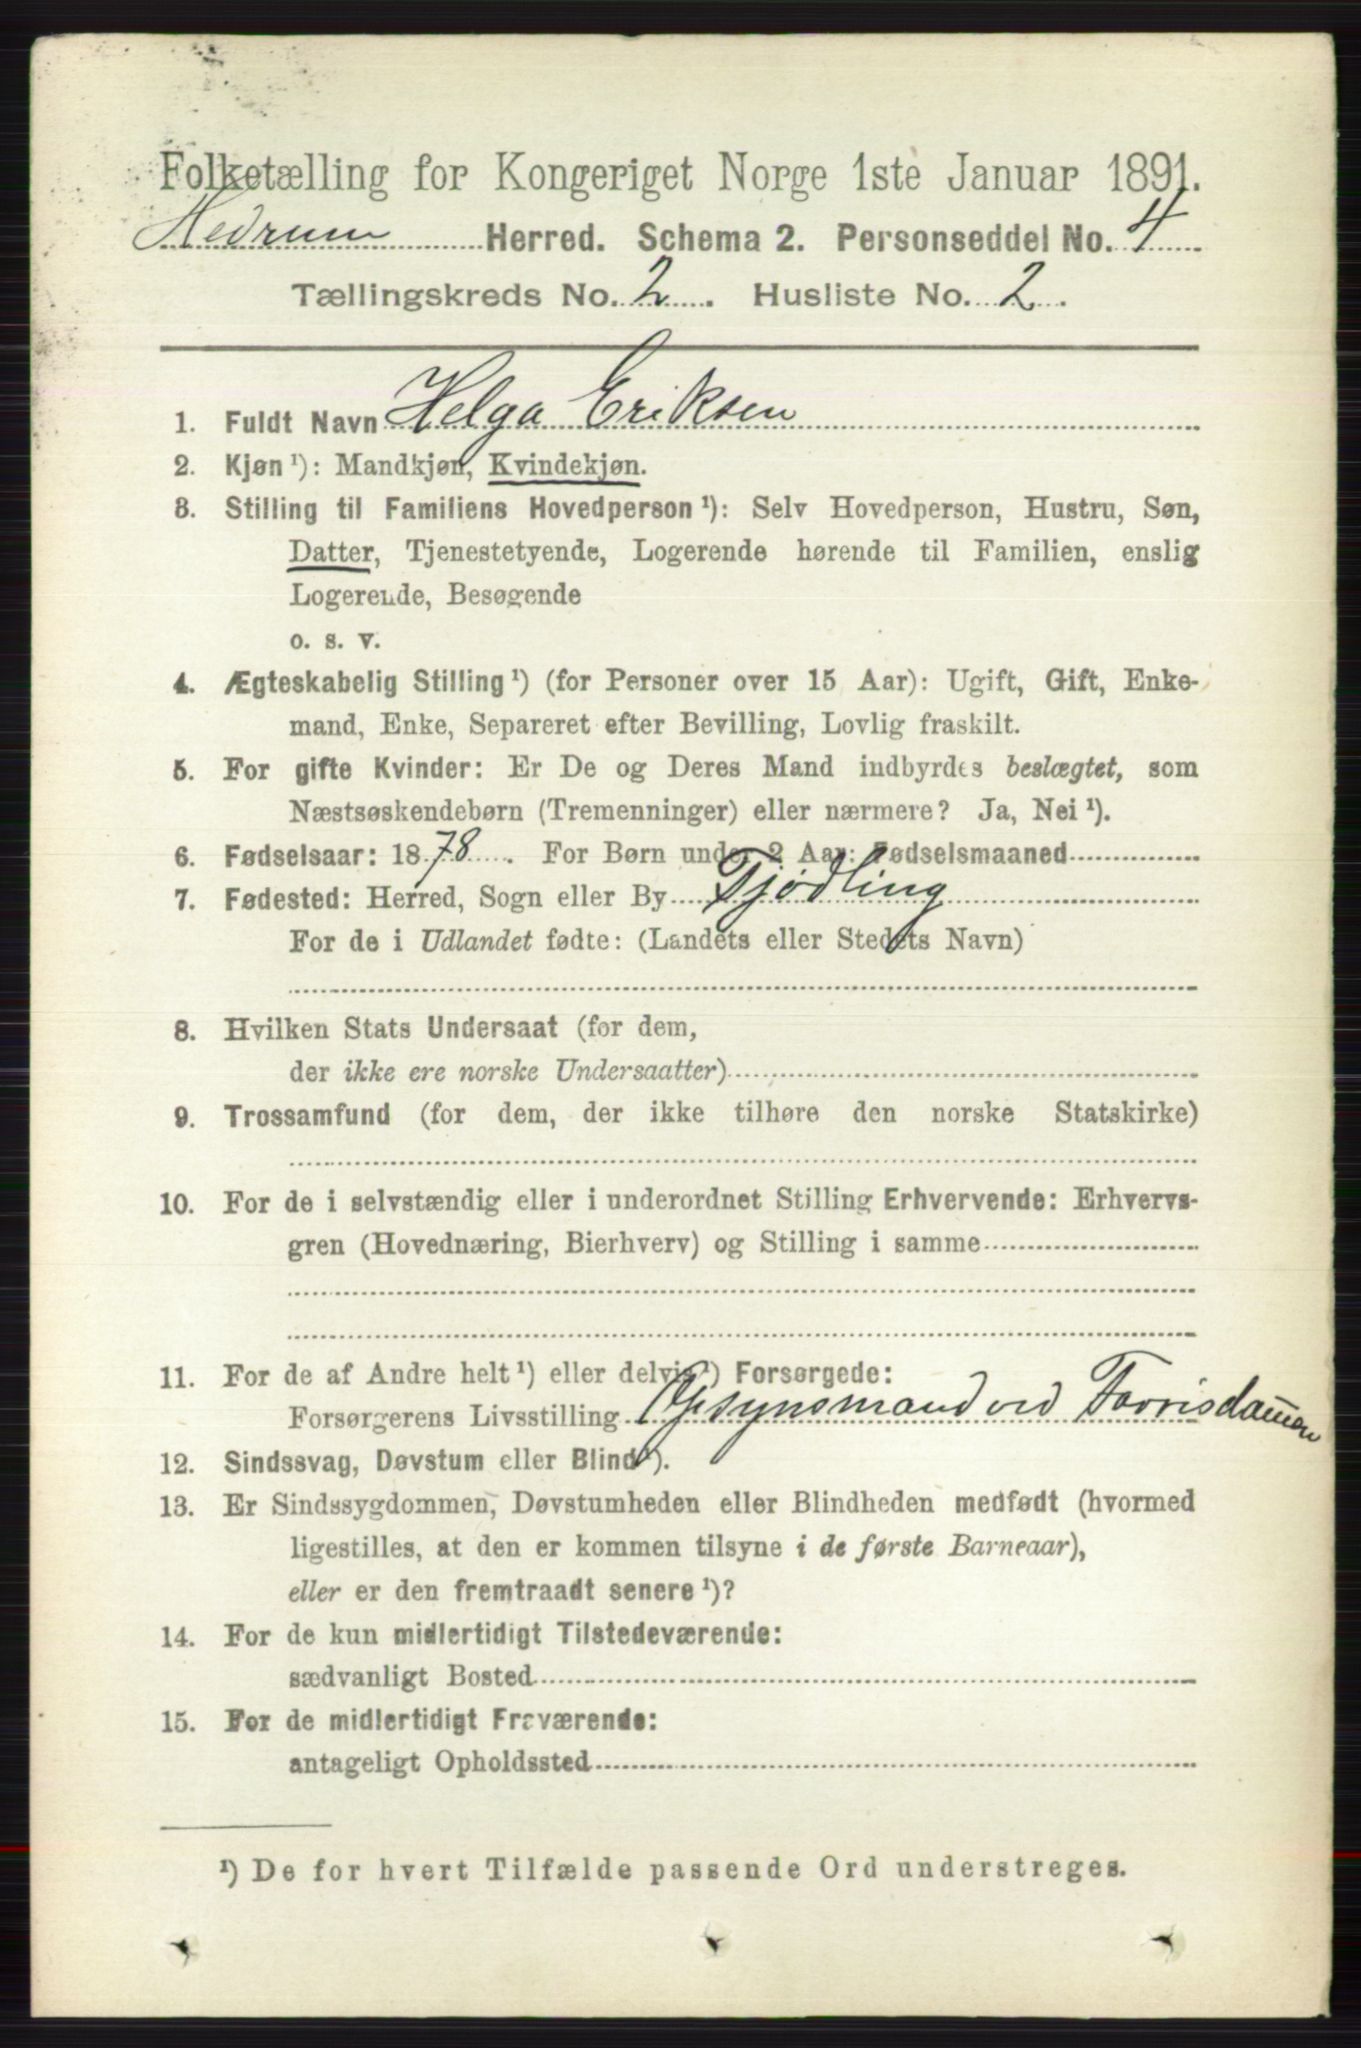 Folketælling for Kongeriget Norge 1ste Januar 1891.
Hedrum Herred. Schema 2. Personseddel No. 4
Tællingskreds No. 2. Husliste No. 2.
1. Fuldt Navn Helga Eriksen
2. Kjøn¹): Mandkjøn, Kvindekjøn.
3. Stilling til Familiens Hovedperson¹): Selv Hovedperson, Hustru, Søn,
Datter, Tjenestetyende, Logerende hørende til Familien, enslig
Logerende, Besøgende
o. s. v.
4. Ægteskabelig Stilling¹) (for Personer over 15 Aar): Ugift, Gift, Enke-
mand, Enke, Separeret efter Bevilling, Lovlig fraskilt.
5. For gifte Kvinder: Er De og Deres Mand indbyrdes beslægtet, som
Næstsøskendebørn (Tremenninger) eller nærmere? Ja, Nei¹).
6. Fødselsaar: 1878. For Børn under 2 Aar: Fødselsmaaned
7. Fødested: Herred, Sogn eller By Tjødling
For de i Udlandet fødte: (Landets eller Stedets Navn)
8. Hvilken Stats Undersaat (for dem,
der ikke ere norske Undersaatter)
9. Trossamfund (for dem, der ikke tilhøre den norske Statskirke)
10. For de i selvstændig eller i underordnet Stilling Erhvervende: Erhvervs-
gren (Hovednæring, Bierhverv) og Stilling i samme
11. For de af Andre helt¹) eller delvis¹) Forsørgede:
Forsørgerens Livsstilling Opsynsmand ved Farrisdammen
12. Sindssvag, Døvstum eller Blind¹).
13. Er Sindssygdommen, Døvstumheden eller Blindheden medfødt (hvormed
ligestilles, at den er kommen tilsyne i de første Barneaar),
eller er den fremtraadt senere¹)?
14. For de kun midlertidigt Tilstedeværende:
sædvanligt Bosted
15. For de midlertidigt Fraværende:
antageligt Opholdssted
¹) De for hvert Tilfælde passende Ord understreges.